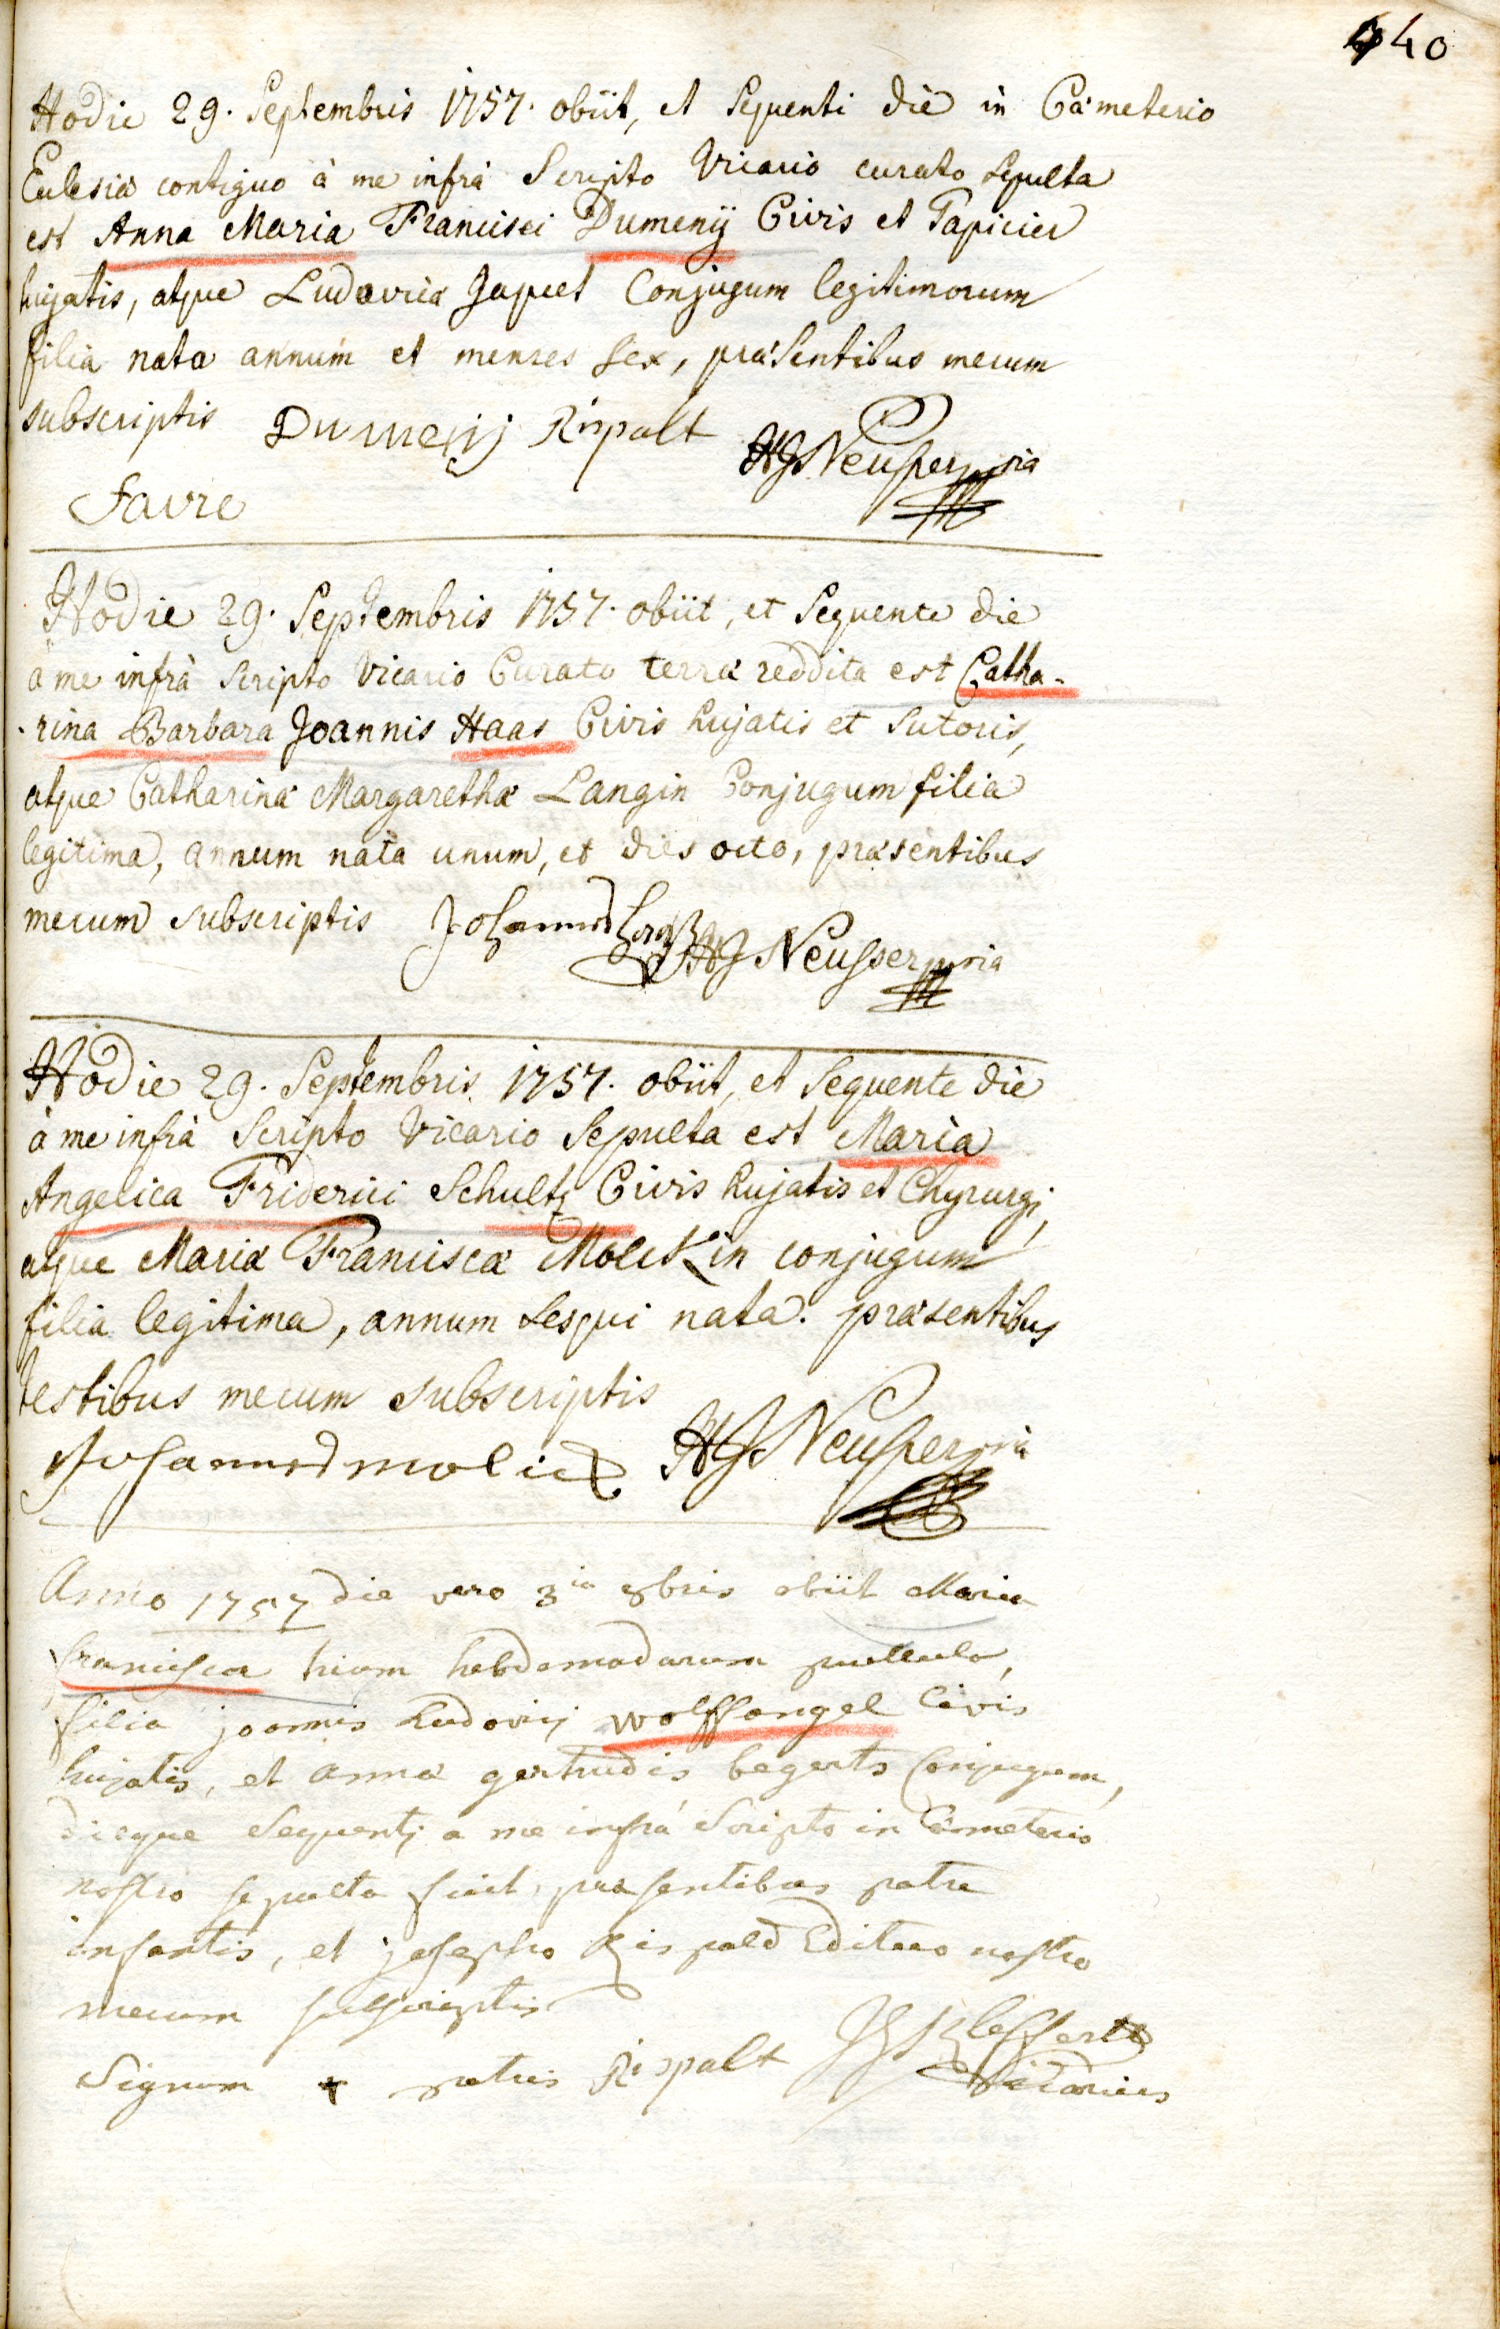 40
Hodie 29. Septembris 1757. obiit, et Sequenti die in Cæmeterio
Eclesiæ contiguo à me infrà Scripto Vicario curato sepulta
est Anna Maria Francisci Dumenij Civis et Tapicier
hujatis, atque Ludovicæ Jaquet Conjugum legitimorum
filia nata annum et menses sex, præsentibus mecum
subscriptis Dumenij Rispalt HJ Neusser pria
favre
Hodie 29. Septembris 1757. obiit, et Sequente die
à me infrà Scripto Vicario Curato terræ reddita est Catha-
-rina Barbara Joannis Haas Civis hujatis et Sutoris,
atque Catharinæ Margarethæ Langin Conjugum filia
legitima, annum nata unum, et dies octo, præsentibus
mecum subscriptis Johannes HJ Neusser pria
Hodie 29. Septembris 1757. obiit, et Sequente die
à me infrà Scripto Vicario Sepulta est Maria
Angelica Friderici Schultz Civis hujatis et Chyrurgi,
atque Mariæ Franciscæ Molckin conjugum
filia legitima, annum sesqui nata. præsentibus
testibus mecum subscriptis
Johannes molick HJ Neusser pria
Anno 1757 die vero 3ia 8bris obiit Maria
francisca trium hebdomadarum puellula,
filia joannis Ludovicj wolffangel Civis
hujatis, et annæ gertrudis begerts Conjugum,
dieque Sequentj a me infrá Scripto in Cæmeterio
nostro sepulta fuit, præsentibus patre
infantis, et josepho Rispald Edituo nostro
mecum subscriptis
Signum + patris Rispalt Vicarius